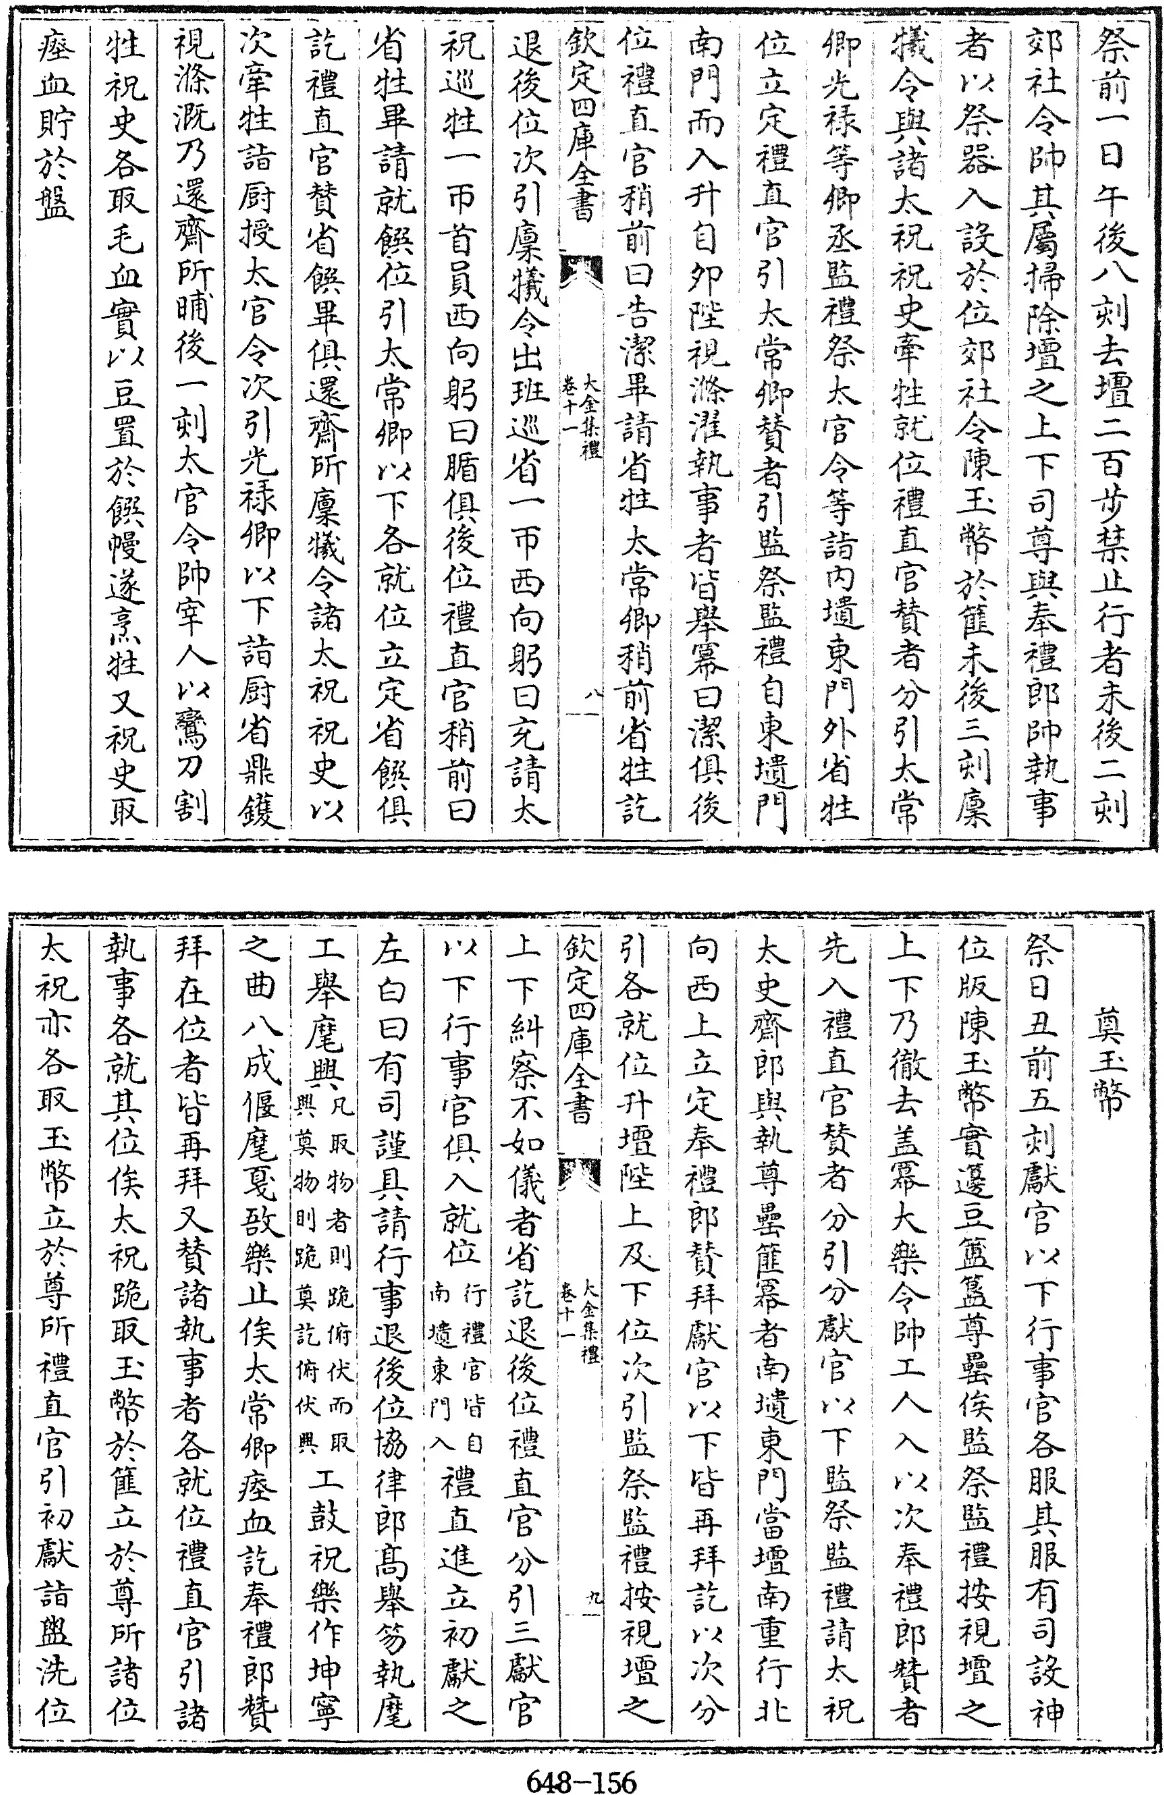 祭前一日午後八刻去壇二百步禁止行者未後二刻
郊社令帥其屬掃除壇之上下司尊與奉禮郎帥執事
者以祭器入設於位郊社令陳玉幣於篚未後三刻廩
犧令與諸太祝祝史牽牲就位禮直官贊者分引太常
卿光祿等卿丞監禮祭太官令等詣內壝東門外省牲
位立定禮直官引太常卿贊者引監祭監禮自東壝門
南門而入升自夘陛視滌濯執事者皆舉冪曰潔俱後
位禮直官稍前曰告潔畢請省牲太常卿稍前省牲訖
欽定四庫全書
大金集禮
卷十一
八
退後位次引廩犧令出班巡省一帀西向躬曰充請太
祝巡牲一帀首員西向躬曰腯俱後位禮直官稍前曰
省牲畢請就饌位引太常卿以下各就位立定省饌俱
訖禮直官贊省饌畢俱還齋所廩犧令諸太祝祝史以
次牽牲詣厨授太官令次引光祿卿以下詣厨省鼎鑊
視滌溉乃還齋所晡後一刻太官令帥宰人以鸞刀割
牲祝史各取毛血實以豆置於饌幔遂烹牲又祝史取
瘞血貯於盤
奠玉幣
祭日丑前五刻獻官以下行事官各服其服有司設神
位版陳玉幣實籩豆簠簋尊罍俟監祭監禮按視壇之
上下乃徹去盖冪大樂令帥工人入以次奉禮郎贊者
先入禮直官贊者分引分獻官以下監祭監禮請太祝
太史齋郎與執尊罍篚冪者南壝東門當壇南重行北
向西上立定奉禮郎贊拜獻官以下皆再拜訖以次分
引各就位升壇陛上及下位次引監祭監禮按視壇之
欽定四庫全書
大金集禮
卷十一
九
上下糾察不如儀者省訖退後位禮直官分引三獻官
以下行事官俱入就位行禮官皆自南壝東門入禮直進立初獻之
左白曰有司謹具請行事退後位協律郎高舉笏執麾
工舉麾興凡取物者則跪俯伏而取興奠物則跪奠訖俯伏興工鼓祝樂作坤寧
之曲八成偃麾戛敔樂止俟太常卿瘞血訖奉禮郎贊
拜在位者皆再拜又贊諸執事者各就位禮直官引諸
執事各就其位俟太祝跪取玉幣於篚立於尊所諸位
太祝亦各取玉幣立於尊所禮直官引初獻詣盥洗位
648-156